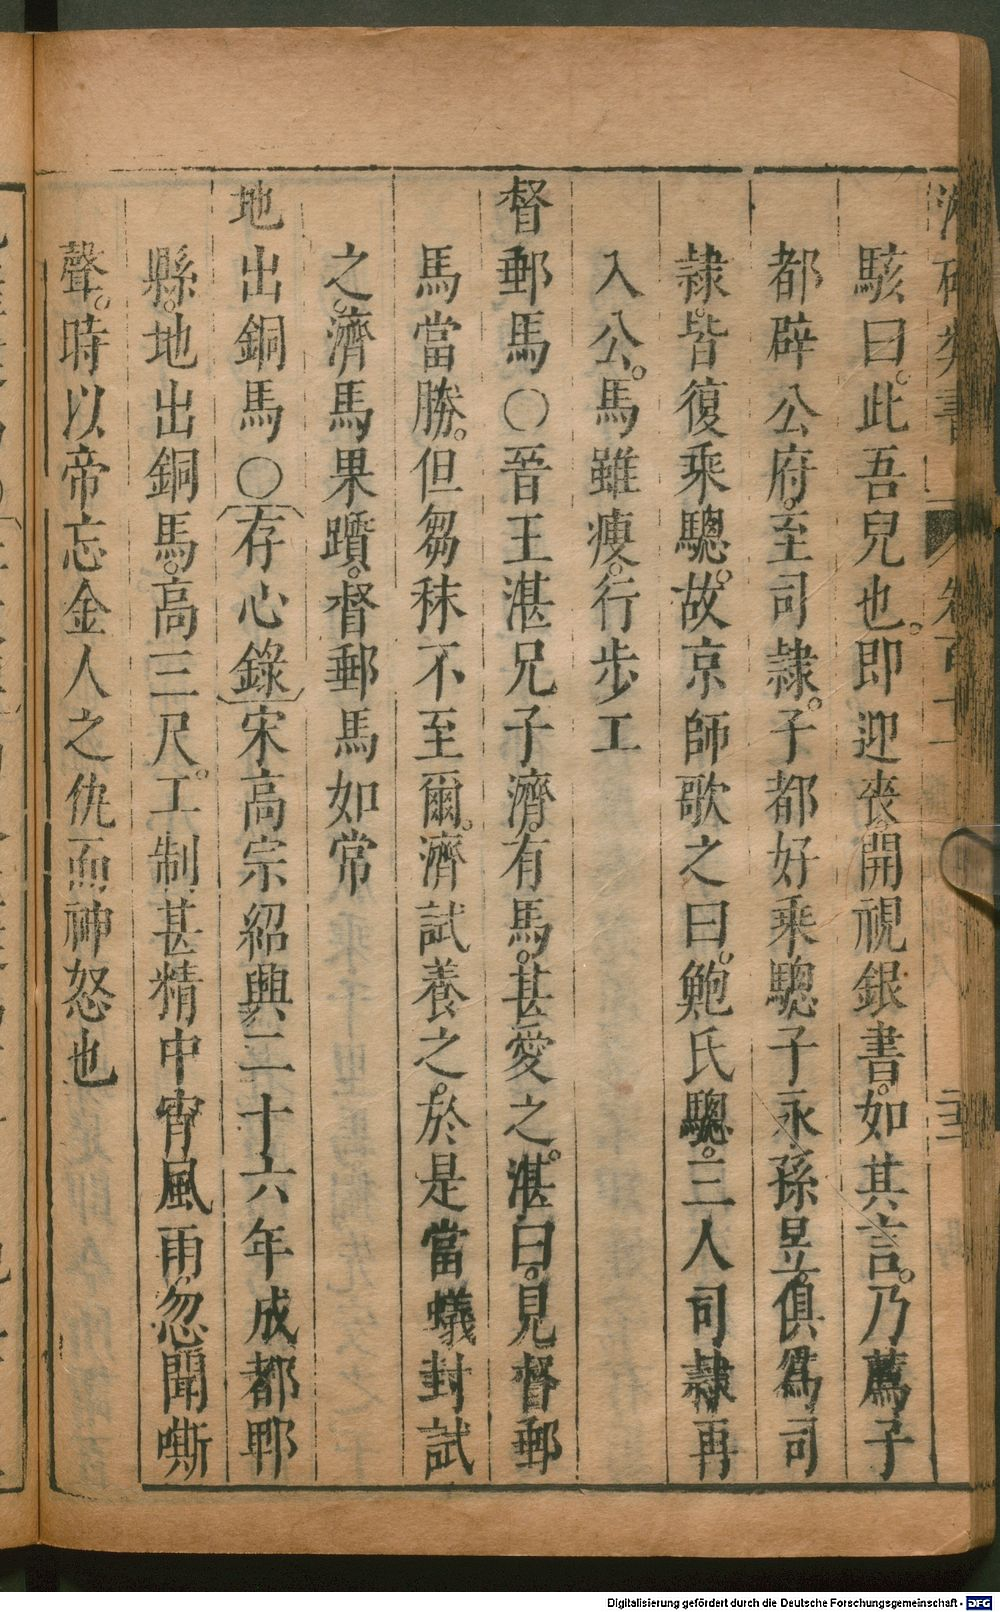 駭曰。此吾兒也。即迎喪。開視銀書。如其言。乃薦子
都辟公府。至司隷。子都好乘驄。子永孫昱。俱爲司
隷。皆復乘驄。故京師歌之曰。鮑氏驄。三人司隷再
入公。馬雖瘦。行步工
督郵馬〇晉王湛兄子濟。有馬。甚愛之。湛曰。見督郵
馬當勝。但芻秣不至爾。濟試養之。於是當蟻封試
之。濟馬果躓。督郵馬如常
地出銅馬〇〔存心錄〕宋高宗紹興二十六年成都郫
縣。地出銅馬。高三尺。工制甚精中宵風雨。忽聞嘶
聲。時以帝忘金人之仇而神怒也
Digitalisierung gefördert durch die Deutsche Forschungsgemeinschaft - DFG